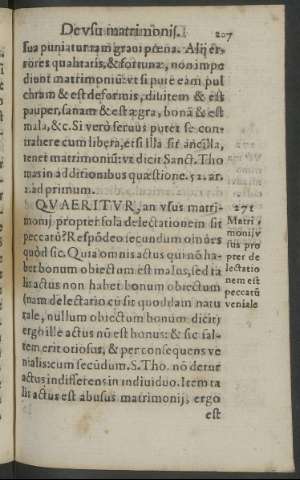 De vsu matrimonij.
207
sua puniatur tam graui pœna. Alij er-
rores qualitatis, & fortunæ, non impe
diunt matrimoniū: vt si putet eam pul
chram & est deformis, diuitem & est
pauper, sanam & est ægra, bonā & est
mala, &c. Si verò seruus putet se con-
trahere cum libera, et si illa sit ancilla,
tenet matrimoniū: vt dicit Sanct. Tho
mas in additionibus quæstione. 52. ar.
1. ad primum.
QVAERITVR, an vsus matri-
monij propter sola delectationem sit
peccatū? Respōdeo secundum omnes
quòd sic. Quia omnis actus qui nō ha-
bet bonum obiectum est malus, sed ta
lis actus non habet bonum obiectum
(nam delectatio cū sit quoddam natu
rale, nullum obiectum bonum dicit)
ergo ille actus nū est bonus: & sic sal-
tem erit otiosus, & per consequens ve
nialis: cum secūdum. S. Tho. nō detur
actus indifferens in indiuiduo. Item ta
lis actus est abusus matrimonij, ergo
est
271
Matri-
monij v
sus pro
pter de
lectatio
nem est
peccatū
veniale